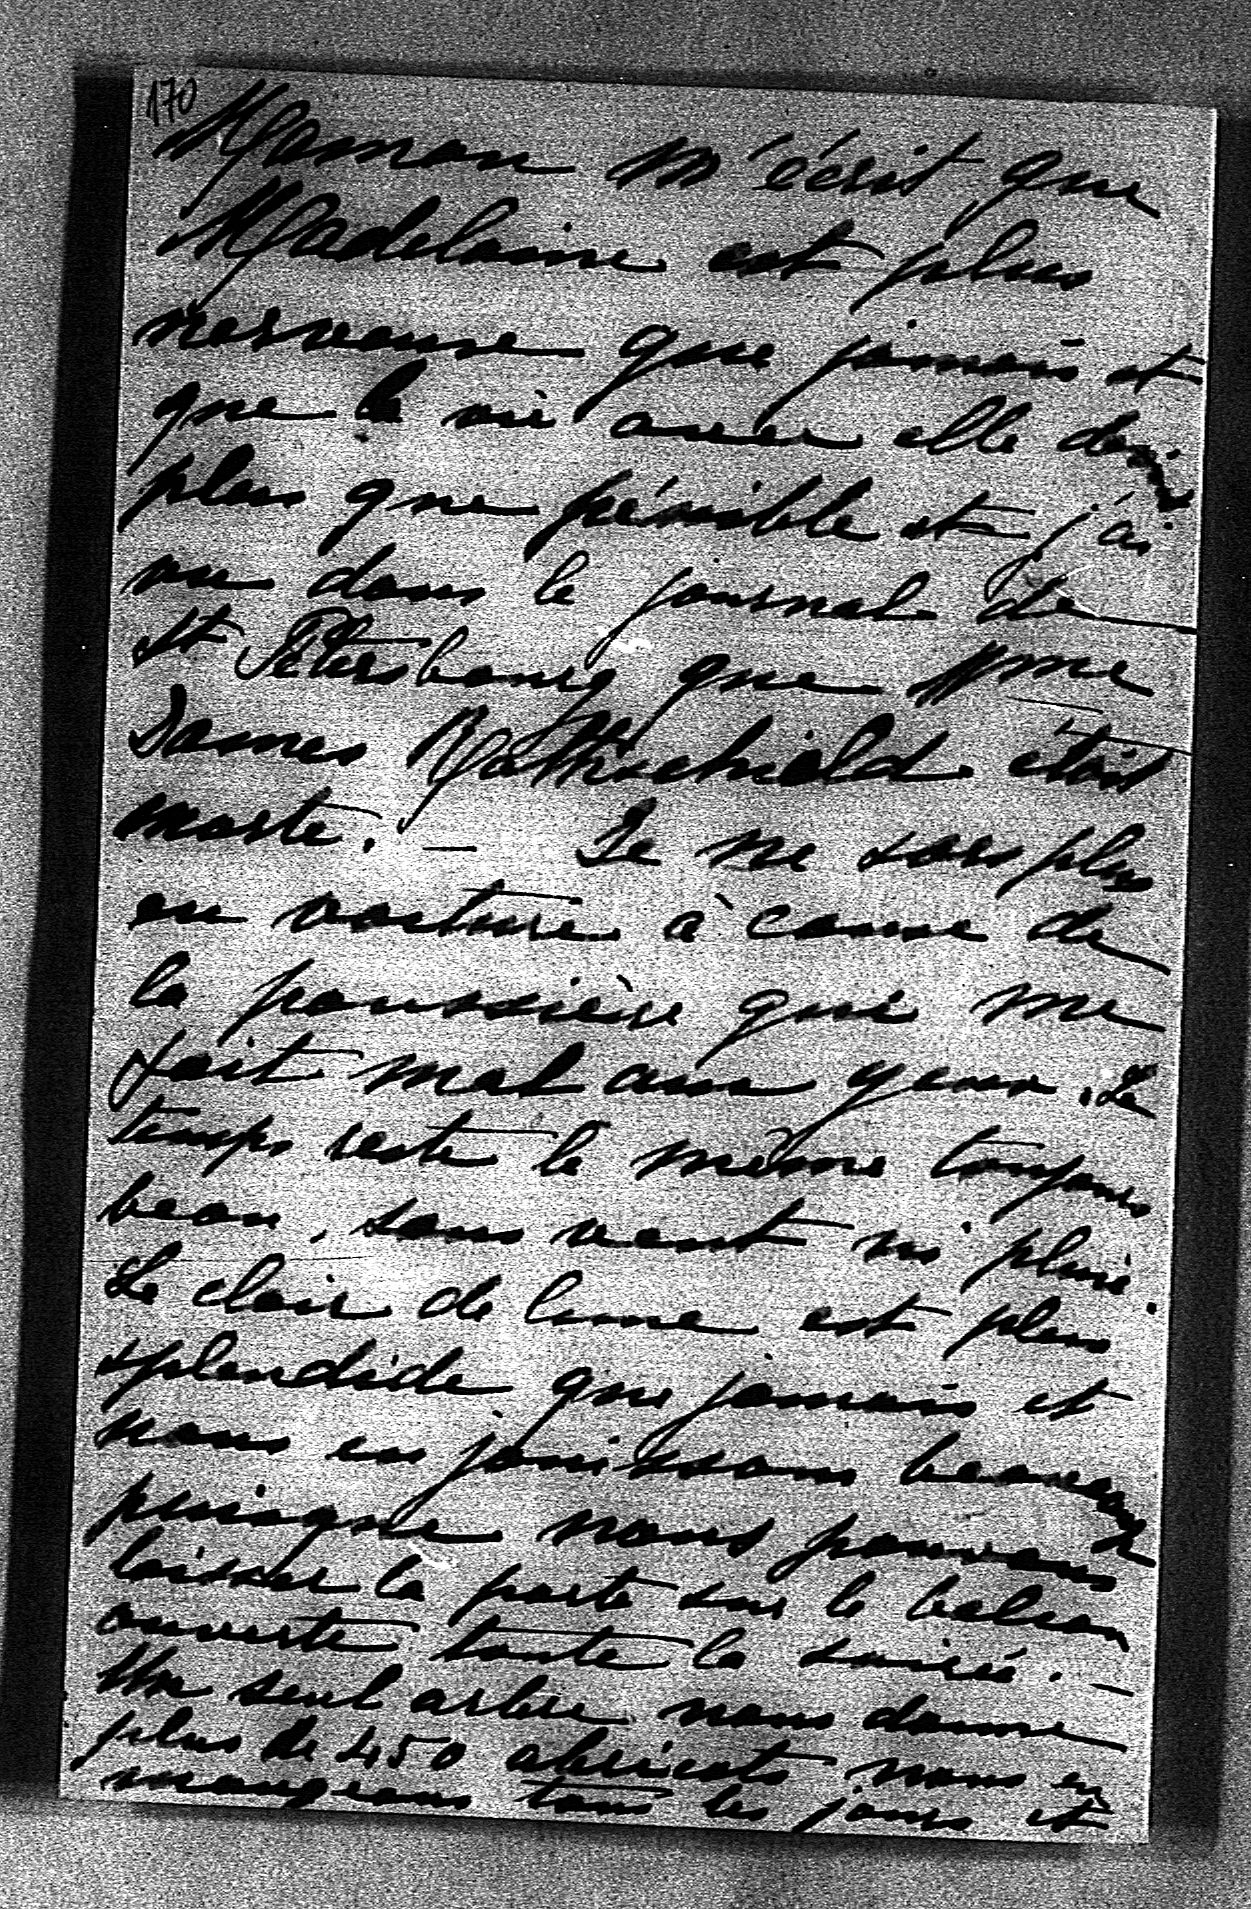 170
Maman m'écrit que
Madelaine est plus
nerveuse que jamais et
que la vie avec elle devient
plus que pénible et j'ai
vu dans le journal de
St Pétersbourg que Mme
James Rothschield était
morte. — Je ne sors plus
en voiture à cause de
la poussière qui me
fait mal aux yeux. Le
temps reste le même toujours
beau, sans vent ni pluie.
Le clair de lune est plus
splendide que jamais et
nous en jouissons beaucoup
puisque nous pouvons
laisser la porte sur le balcon
ouverte toute la soirée. —
Un seul arbre nous donne
plus de 450 abricots nous en
mangeons tous les jours et